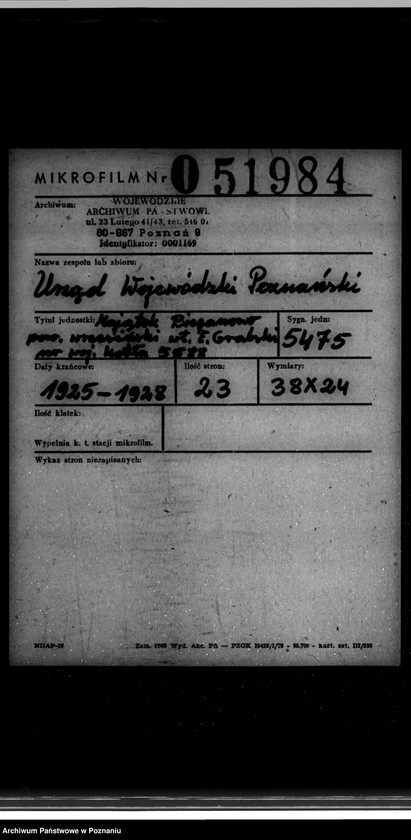 MIKROFILM Nr 051984
Archiwum: WOJEWÓDZKIE
ARCHIWUM PAŃSTWOWE
ul. 23 Lutego 41/43, tel. 546 0
60-967 Poznań 9
Identyfikator: 0001169
Nazwa zespołu lub zbioru:
Urząd Wojewódzki Poznański
Tytuł jednostki: Majątek Bieganowo Sygn. jedn:
pow. wrzesiński wł. E. Grabski 5475
nr woj. 5588
Daty krańcowe: Ilość stron: Wymiary:
1925-1928 23 38X24
Ilość klatek:
Wypełnia k. t. stacji mikrofilm.
Wykaz stron niezapisanych:
NDAP-26 Zam. 1968 Wyd. Akc. Pń — PZGK
Archiwum Państwowe w Poznaniu